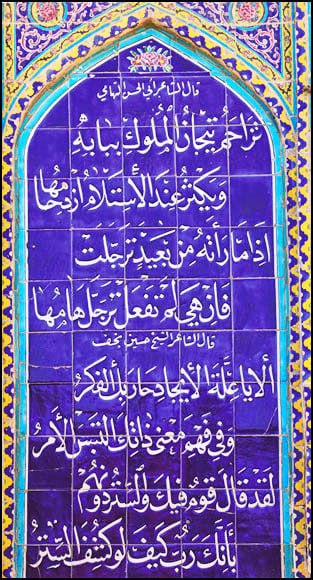 قال الشاعر ابي الحسن التهامي
تزاحم تيجان الملوك ببابه
ويكثر عند الأستلام ازدحامها
اذا ما رأته من بعيد ترجلت
فان هي لم تفعل ترجل هامها
قال الشاعر الشيخ حسين نجف
ألا يا علة الأيجاد حار بك الفكر
وفي فهم معنى ذاتك التبس الأمر
لقد قال قوم فيك والستر دونهم
بأنك رب كيف لو كشف الستر